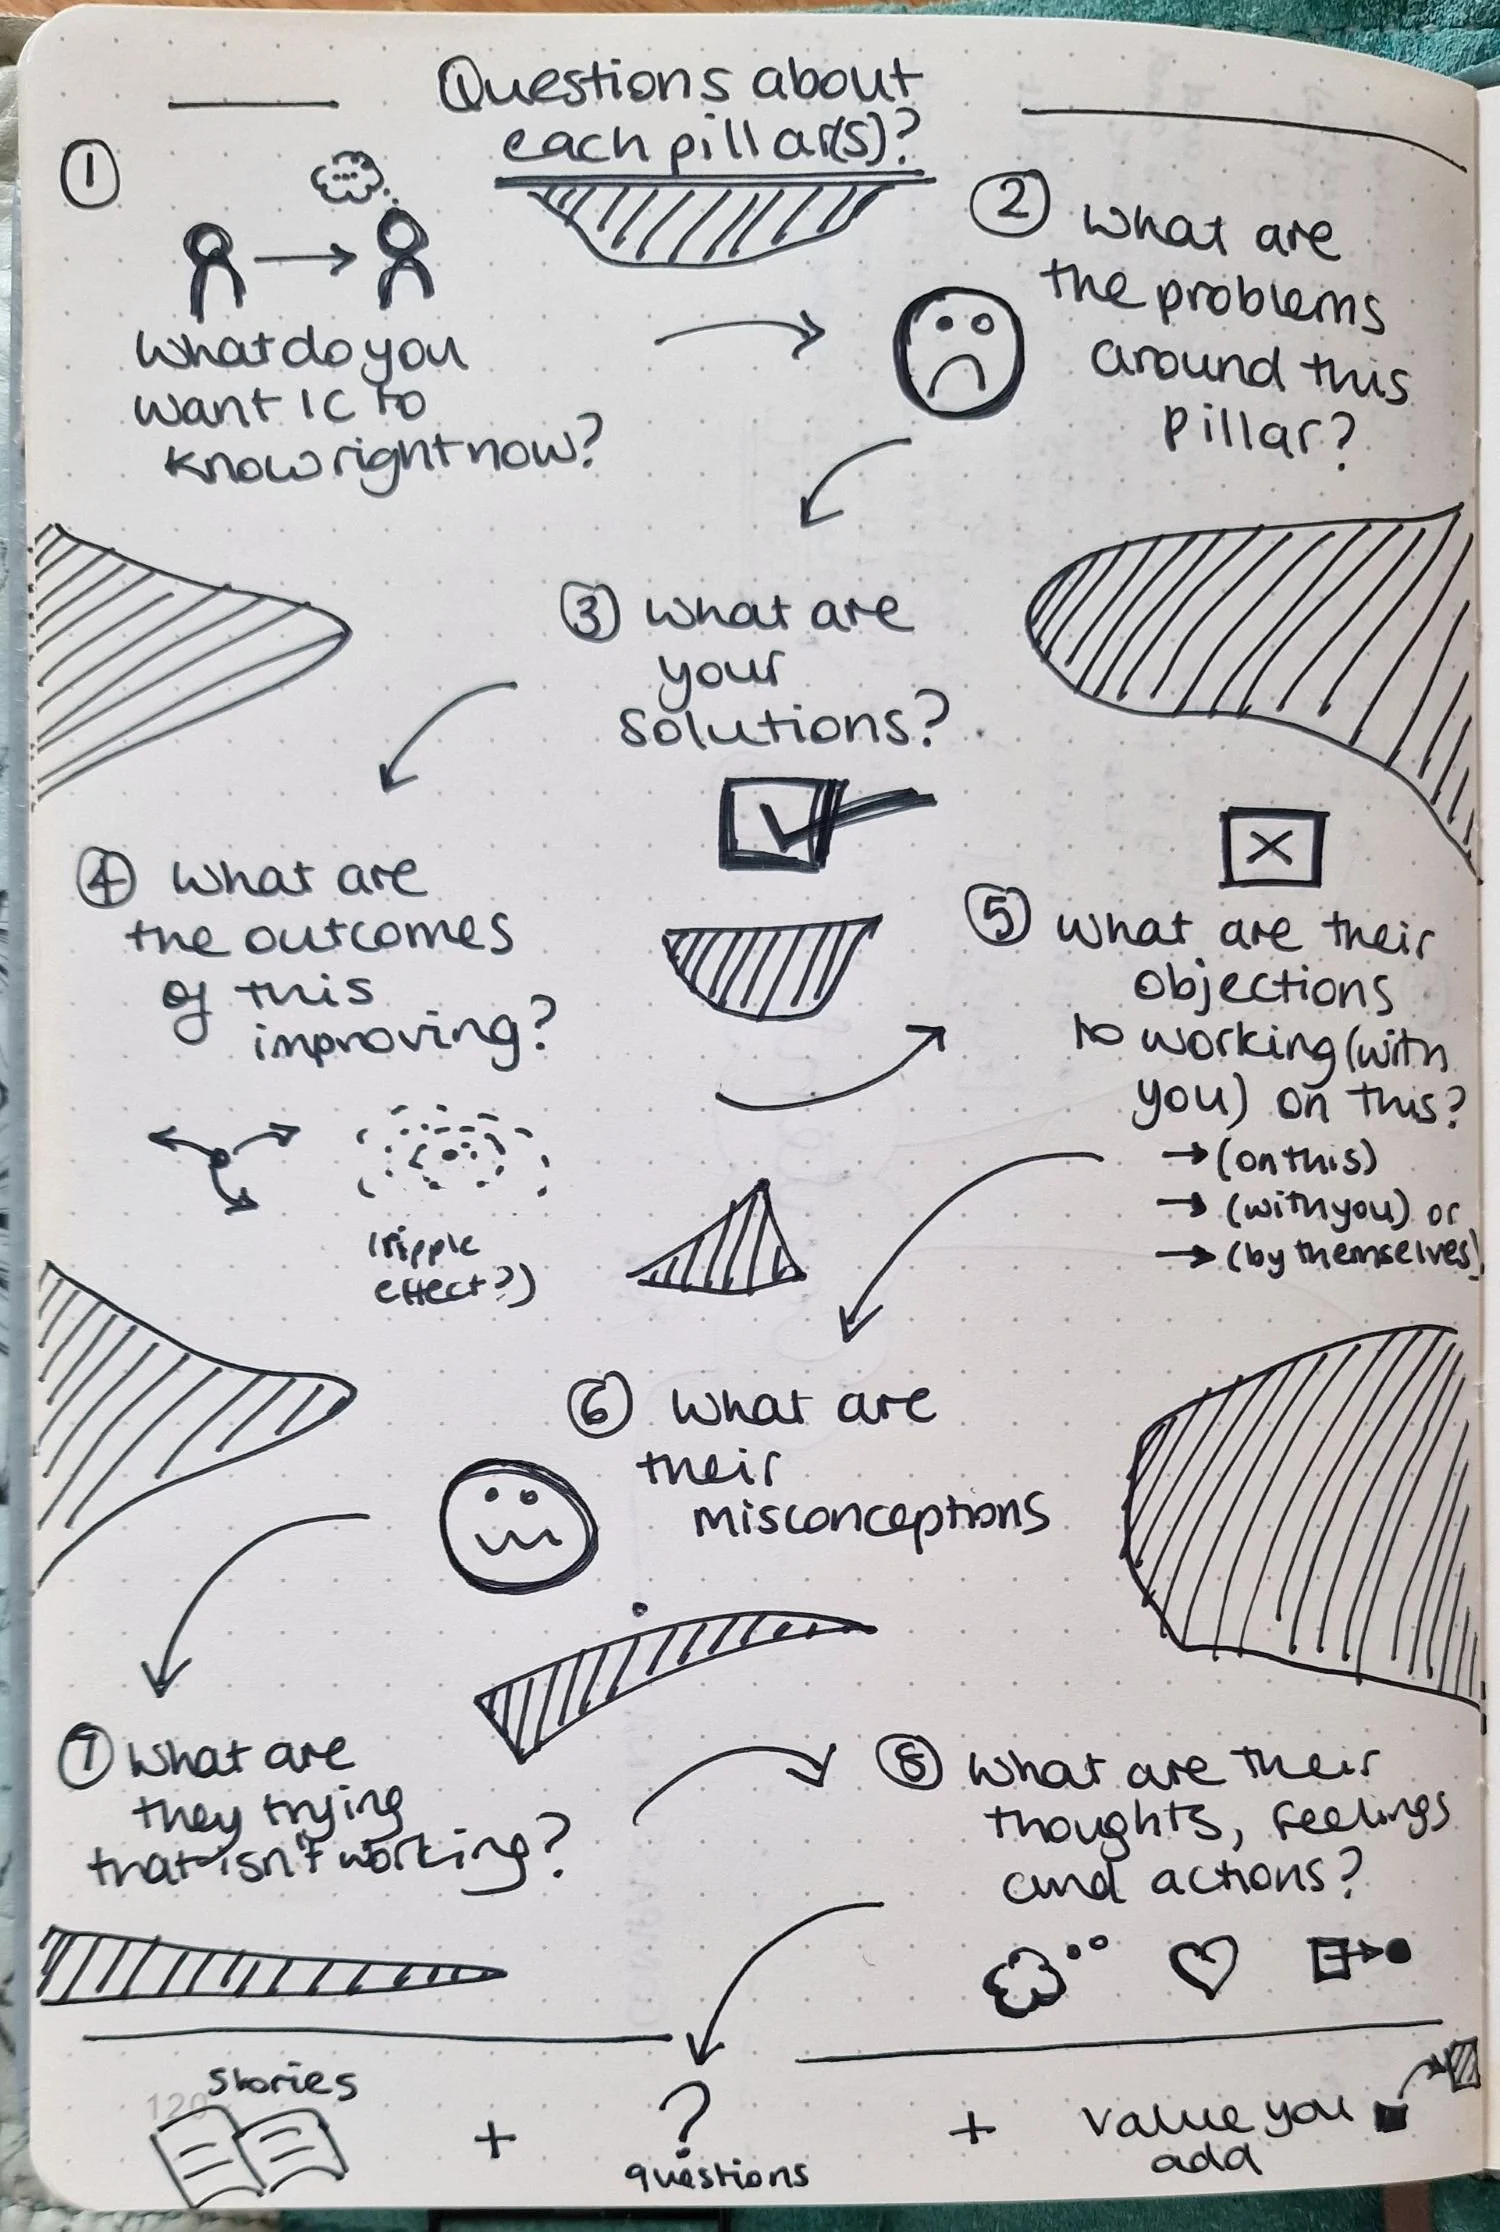 Questions about
each pillar(s)?
1
What do you
want IC to
know right now?
2 What are
the problems
around this
pillar?
3 What are
your
solutions?
4 What are
the outcomes
of this
improving?
(ripple
effect?)
5 What are their
objections
to working (with
you) on this?
→ (on this)
→ (with you) or
→ (by themselves)
6 What are
their
misconceptions
7 What are
they trying
that isn't working?
8 What are their
thoughts, feelings
and actions?
120
stories
+
?
questions
+
value you
add